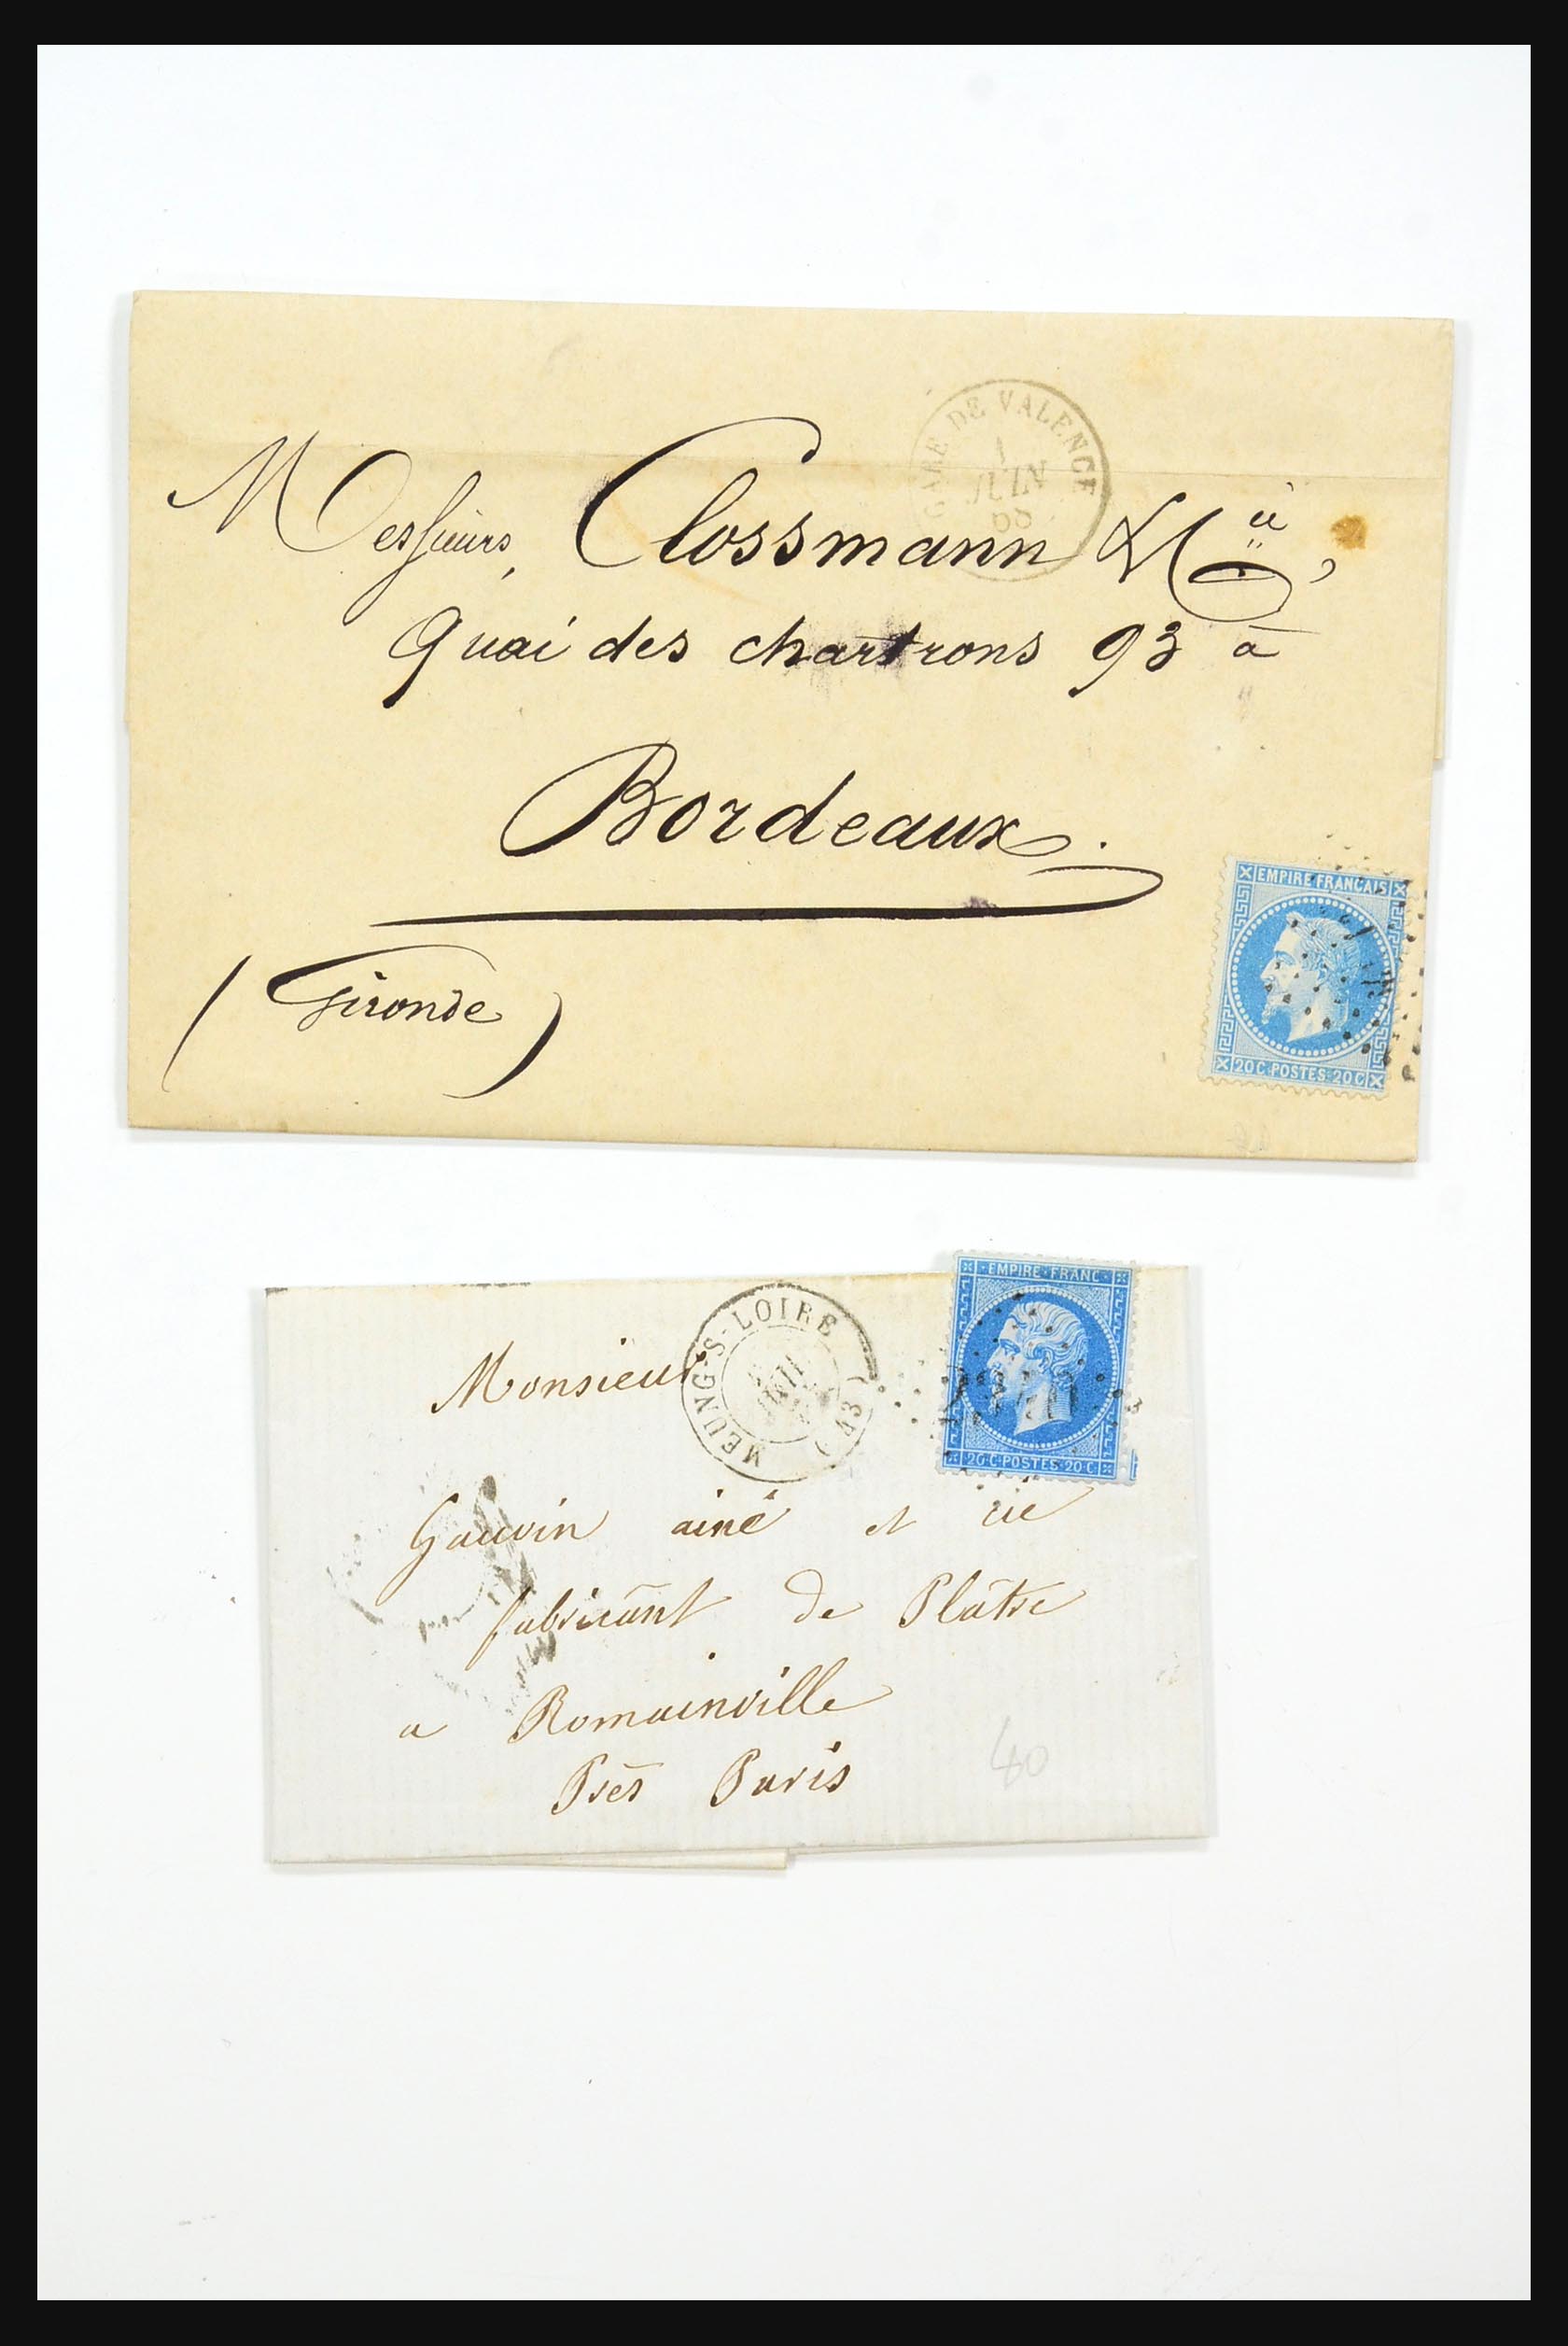 GARE DE VALENCE
1
JUIN
68
Messieurs, Clossmann & Cie,
Quai des chartrons 93 à
Bordeaux.
(Gironde)
EMPIRE FRANCAIS
20 C. POSTES 20 C
EMPIRE FRANC
20 C POSTES 20 C
MEUNG-S-LOIRE (43)
Monsieur
Gauvin ainé et cie
fabricant de Plâtre
a Romainville
Près Paris
40